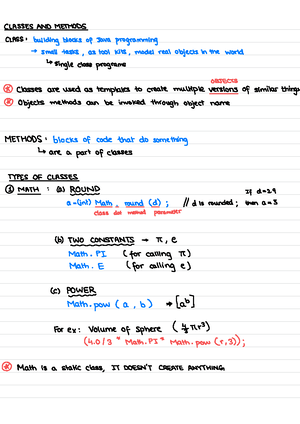 CLASSES AND METHODS
CLASS: building blocks of Java programming
→ small tasks, as tool kits, model real objects in the world
↳ single class programs
OBJECTS
* Classes are used as templates to create multiple versions of similar things
* Objects methods can be invoked through object name
METHODS: blocks of code that do something
↳ are a part of classes
TYPES OF CLASSES
① MATH : (a) ROUND If d=2.9
a=(int) Math . round (d) ; // d is rounded ; then a=3
class dot method parameter
(b) TWO CONSTANTS → π, e
Math. PI (for calling π)
Math. E (for calling e)
(c) POWER
Math.pow (a, b) → [aᵇ]
For ex: Volume of sphere (4/3 πr³)
(4.0/3 * Math.PI * Math.pow (r,3));
* Math is a static class, IT DOESN'T CREATE ANYTHING